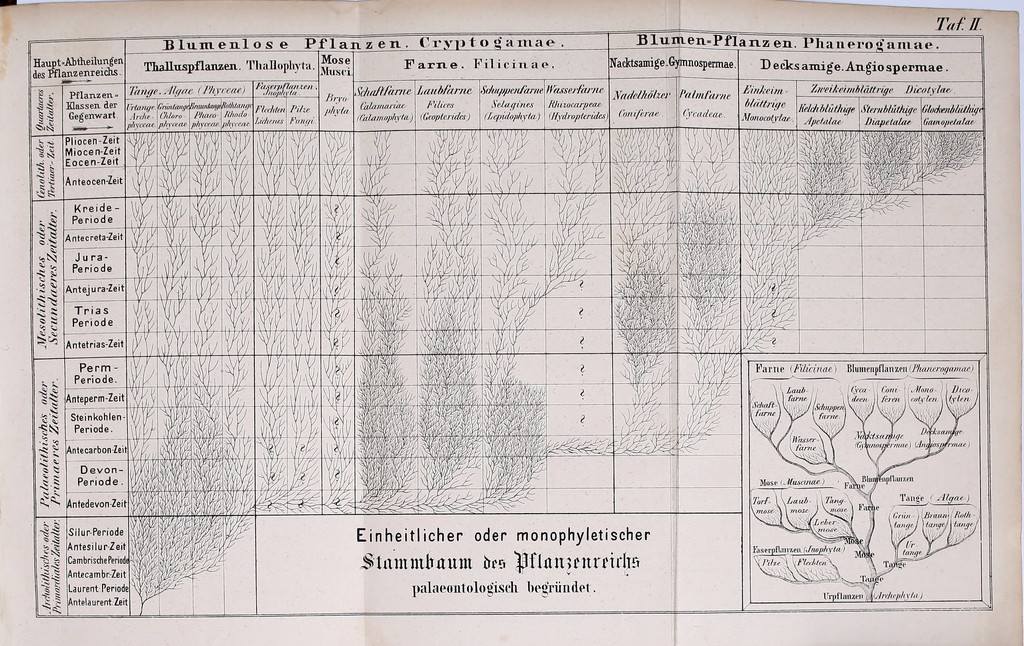 Taf. II.
Blumenlose Pflanzen. Cryptogamae.
Blumen-Pflanzen. Phanerogamae.
Haupt-Abtheilungen
des Pflanzenreichs.
Thalluspflanzen. Thallophyta.
Mose
Musci.
Farne. Filicinae.
Nacktsamige. Gymnospermae.
Decksamige. Angiospermae.
Quartaeres
Zeitalter.
Pflanzen-
Klassen der
Gegenwart.
Tange. Algae (Phyceae)
Urtange
Arche-
phyceae
Grüntange
Chloro-
phyceae
Brauntange
Phaeo-
phyceae
Rothtange
Rhodo-
phyceae
Faserpflanzen.
Inophyta.
Flechten
Lichenes
Pilze
Fungi.
Bryo-
phyta
Schaftfarne
Calamariae
(Calamophyta)
Laubfarne
Filices
(Geopterides)
Schuppenfarne
Selagines
(Lepidophyta)
Wasserfarne
Rhizocarpeae
(Hydropterides)
Nadelhölzer
Coniferae
Palmfarne
Cycadeae.
Einkeim-
blättrige
Monocotylae.
Zweikeimblättrige Dicotylae.
Kelchblüthige
Apetalae
Sternblüthige
Diapetalae
Glockenblüthige
Gamopetalae
Cenolith. oder
Tertiaer-Zeit.
Pliocen-Zeit
Miocen-Zeit
Eocen-Zeit
Anteocen-Zeit
Mesolithisches oder
Secundaeres Zeitalter.
Kreide-
Periode
Antecreta-Zeit
Jura-
Periode
Antejura-Zeit
Trias
Periode
Antetrias-Zeit
Palaeolithisches oder
Primaeres Zeitalter.
Perm-
Periode.
Anteperm-Zeit
Steinkohlen-
Periode.
Antecarbon-Zeit
Devon-
Periode.
Antedevon-Zeit
Archolithisches oder
Primordiales Zeitalter
Silur-Periode
Antesilur-Zeit
Cambrische Periode
Antecambr-Zeit
Laurent. Periode
Antelaurent. Zeit
Einheitlicher oder monophyletischer
Stammbaum des Pflanzenreichs
palaeontologisch begründet.
Farne (Filicinae)
Blumenpflanzen (Phanerogamae)
Schaft-
farne
Laub-
farne
Schuppen
farne
Wasser-
farne
Cyca-
deen
Coni-
feren
Mono-
cotylen
Dico-
tylen
Nacktsamige
(Gymnospermae)
Decksamige
(Angiospermae)
Blumenpflanzen
Farne
Mose (Muscinae)
Torf-
mose
Laub-
mose
Tang-
mose
Leber-
mose
Farne
Tange (Algae)
Grün-
tange
Braun-
tange
Roth-
tange
Ur
tange
Mose
Mose
Faserpflanzen (Inophyta)
Pilze
Flechten
Tange
Tange
Urpflanzen (Archephyta)